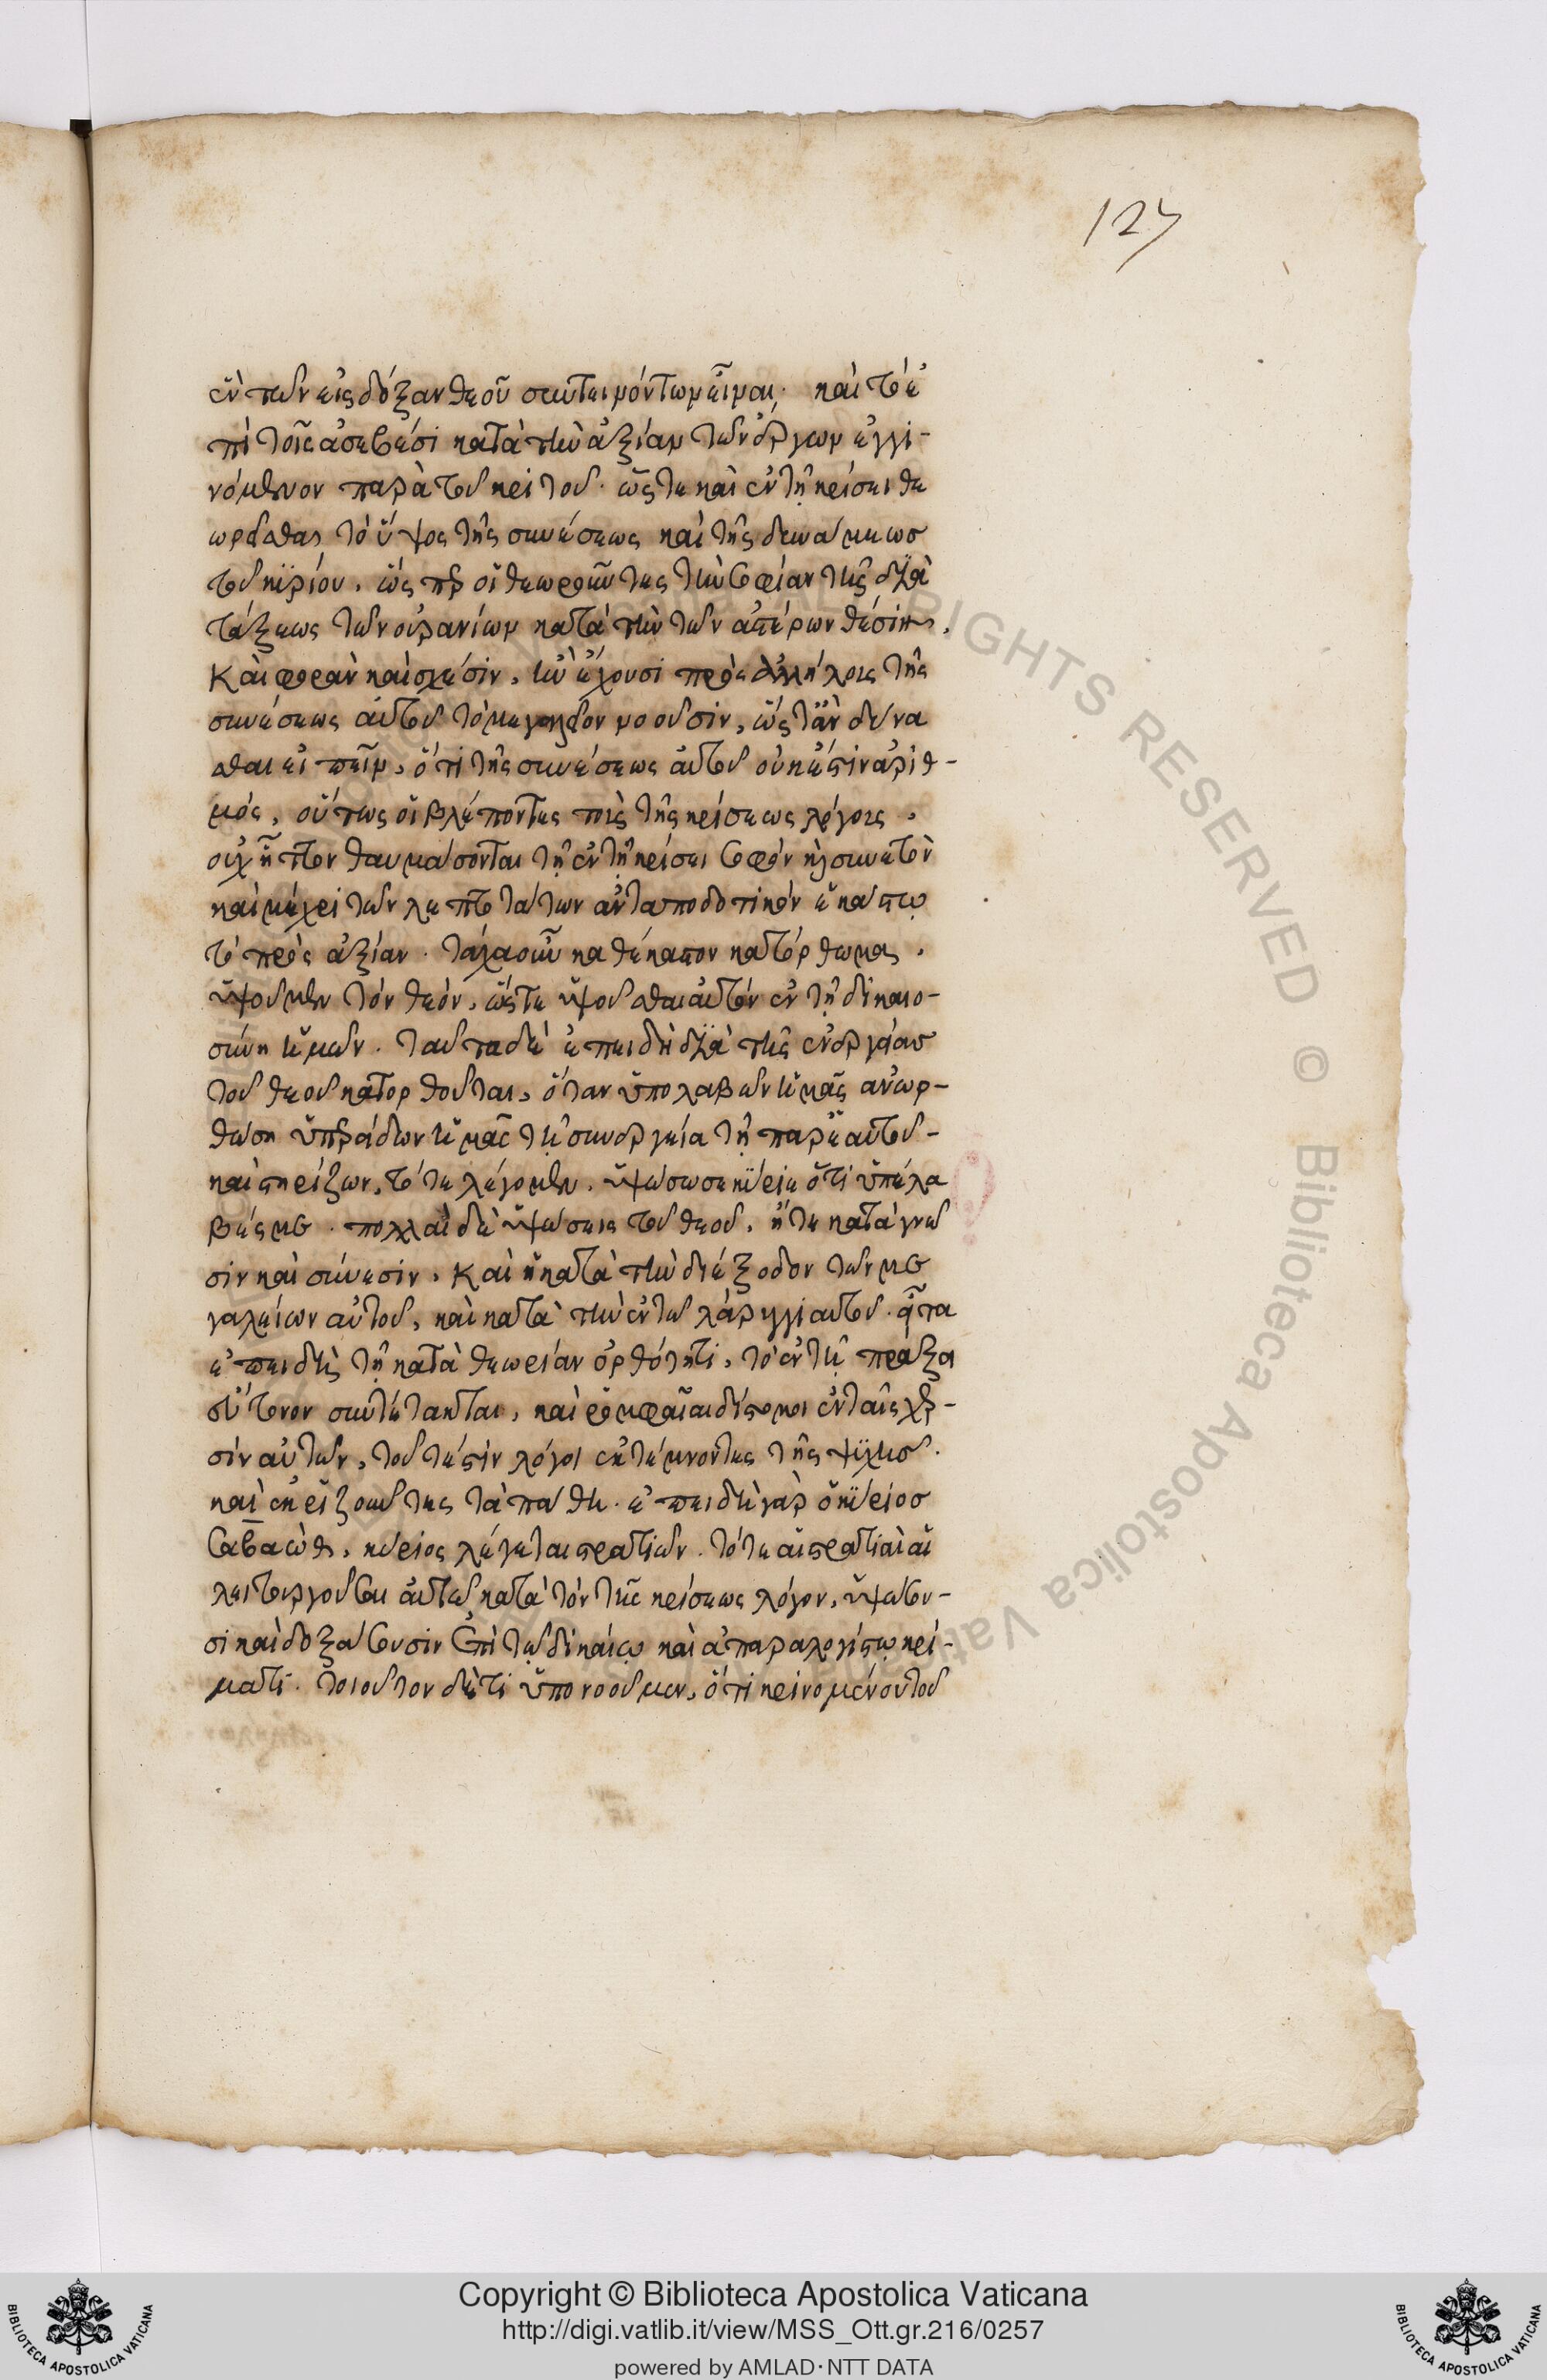 127
ἓν τῶν εἰς δόξαν θεοῦ συντεινόντων εἶναι. καὶ τὸ ἐ
πὶ τοῖς ἀσεβέσι κατὰ τὴν ἀξίαν τῶν ἔργων ἐγγι-
νόμενον παρὰ τοῦ κριτοῦ. ὥστε καὶ ἐν τῇ κρίσει θε
ωρεῖσθαι τὸ ὕψος τῆς συνέσεως καὶ τῆς δυνάμεωσ
τοῦ κυρίου. ὥσπερ οἱ θεωροῦντες τὴν σοφίαν τῆς δια
τάξεως τῶν οὐρανίων κατὰ τὴν τῶν ἀστέρων θέσιν,
Καὶ φορὰν καὶ σχέσιν, ἣν ἔχουσι πρὸς ἀλλήλοις τῆς
συνέσεως αὐτοῦ τὸ μεγαλεῖον νοοῦσιν, ὥστ' ἂν δύνα
σθαι εἰπεῖν, ὅτι τῆς συνέσεως αὐτοῦ οὐκ ἔστιν ἀριθ-
μός, οὕτως οἱ βλέποντες τοὺς τῆς κρίσεως λόγοις,
οὐχ ἧττον θαυμάσονται τῇ ἐν τῇ κρίσει σοφὸν κ συνετὸν
καὶ μέχρι τῶν λεπτοτάτων ἀνταποδοτικόν ἑκάστῳ
τὸ πρὸς ἀξίαν. τάχα οὖν καθ' ἕκαστον κατόρθωμα,
ὑψοῦμεν τὸν θεόν, ὥστε ὑψοῦσθαι αὐτὸν ἐν τῇ δικαιο-
σύνη ἡμῶν. ταῦτα δὲ ἐπειδὴ διὰ τῆς ἐνεργείασ
τοῦ θεοῦ κατορθοῦται, ὅταν ὑπολαβὼν ἡμᾶς ἀνωρ-
θώση ὑπερείδων ἡμᾶς τῇ συνεργεία τῇ παρ' ἑαυτοῦ-
καὶ στηρίζων, τότε λέγομεν. ὑψώσω σε κύριε ὅτι ὑπέλα
βές με. πολλαὶ δὲ ὑψώσεις τοῦ θεοῦ. ἥ τε κατὰ γνῶ
σιν καὶ σύνεσιν, Καὶ ἡ κατὰ τὴν διέξοδον τῶν με
γαλείων αὐτοῦ, καὶ κατὰ τὴν ἐν τῶ λάρυγγι αὐτοῦ. εἶτα
ἐπειδὴ τῇ κατὰ θεωρίαν ὀρθότητι, τὸ ἐν τῇ πράξει
σύτονον συντέτακται, καὶ ῥομφαῖαι δίστομοι ἐν ταῖς χερ-
σὶν αὐτῶν, τουτέστιν λόγοι ἐκτέμνοντες τῆς ψυχῆσ.
καὶ ἐκριζοῦντες τὰ πάθη. ἐπειδὴ γὰρ ὁ κύριοσ
Σαβαώθ, κύριος λέγεται στρατιῶν. τότε αἱ στρατιαὶ αἱ
λειτουργοῦσαι αὐτῶ κατὰ τὸν τῆς κρίσεως λόγον, ὑψώσου-
σι καὶ δοξάσουσιν ἐπὶ τῷ δικαίῳ καὶ ἀπαραλογίστῳ κρί-
ματι. τοιοῦτον δέ τι ὑπονοοῦμεν, ὅτι κρινομένου τοῦ
Copyright © Biblioteca Apostolica Vaticana
http://digi.vatlib.it/view/MSS_Ott.gr.216/0257
powered by AMLAD·NTT DATA
BIBLIOTECA APOSTOLICA VATICANA
BIBLIOTECA APOSTOLICA VATICANA